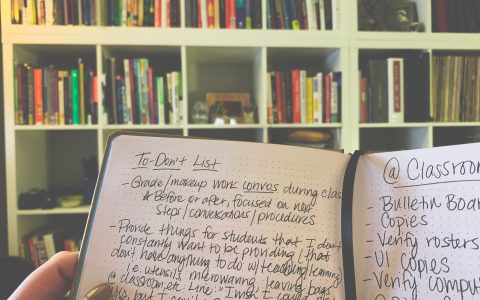 To-Don't List
- Grade/makeup work convos during class
* Before or after, focused on next
steps/conversations/procedures
- Provide things for students that I don't
constantly want to be providing (that
don't have anything to do w/teaching/learning
i.e. utensils, microwaving, leaving bags
@ classroom, etc. Line: "I wish I could
but I
@ Classroom
- Bulletin Board
Copies
- Verify rosters
- U1 copies
- Verify